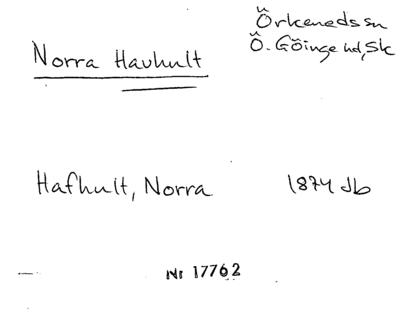 Norra Havhult
Örkeneds sn
Ö. Göinge hd, Sk
Hafhult, Norra 1874 Jb
Nr 17762